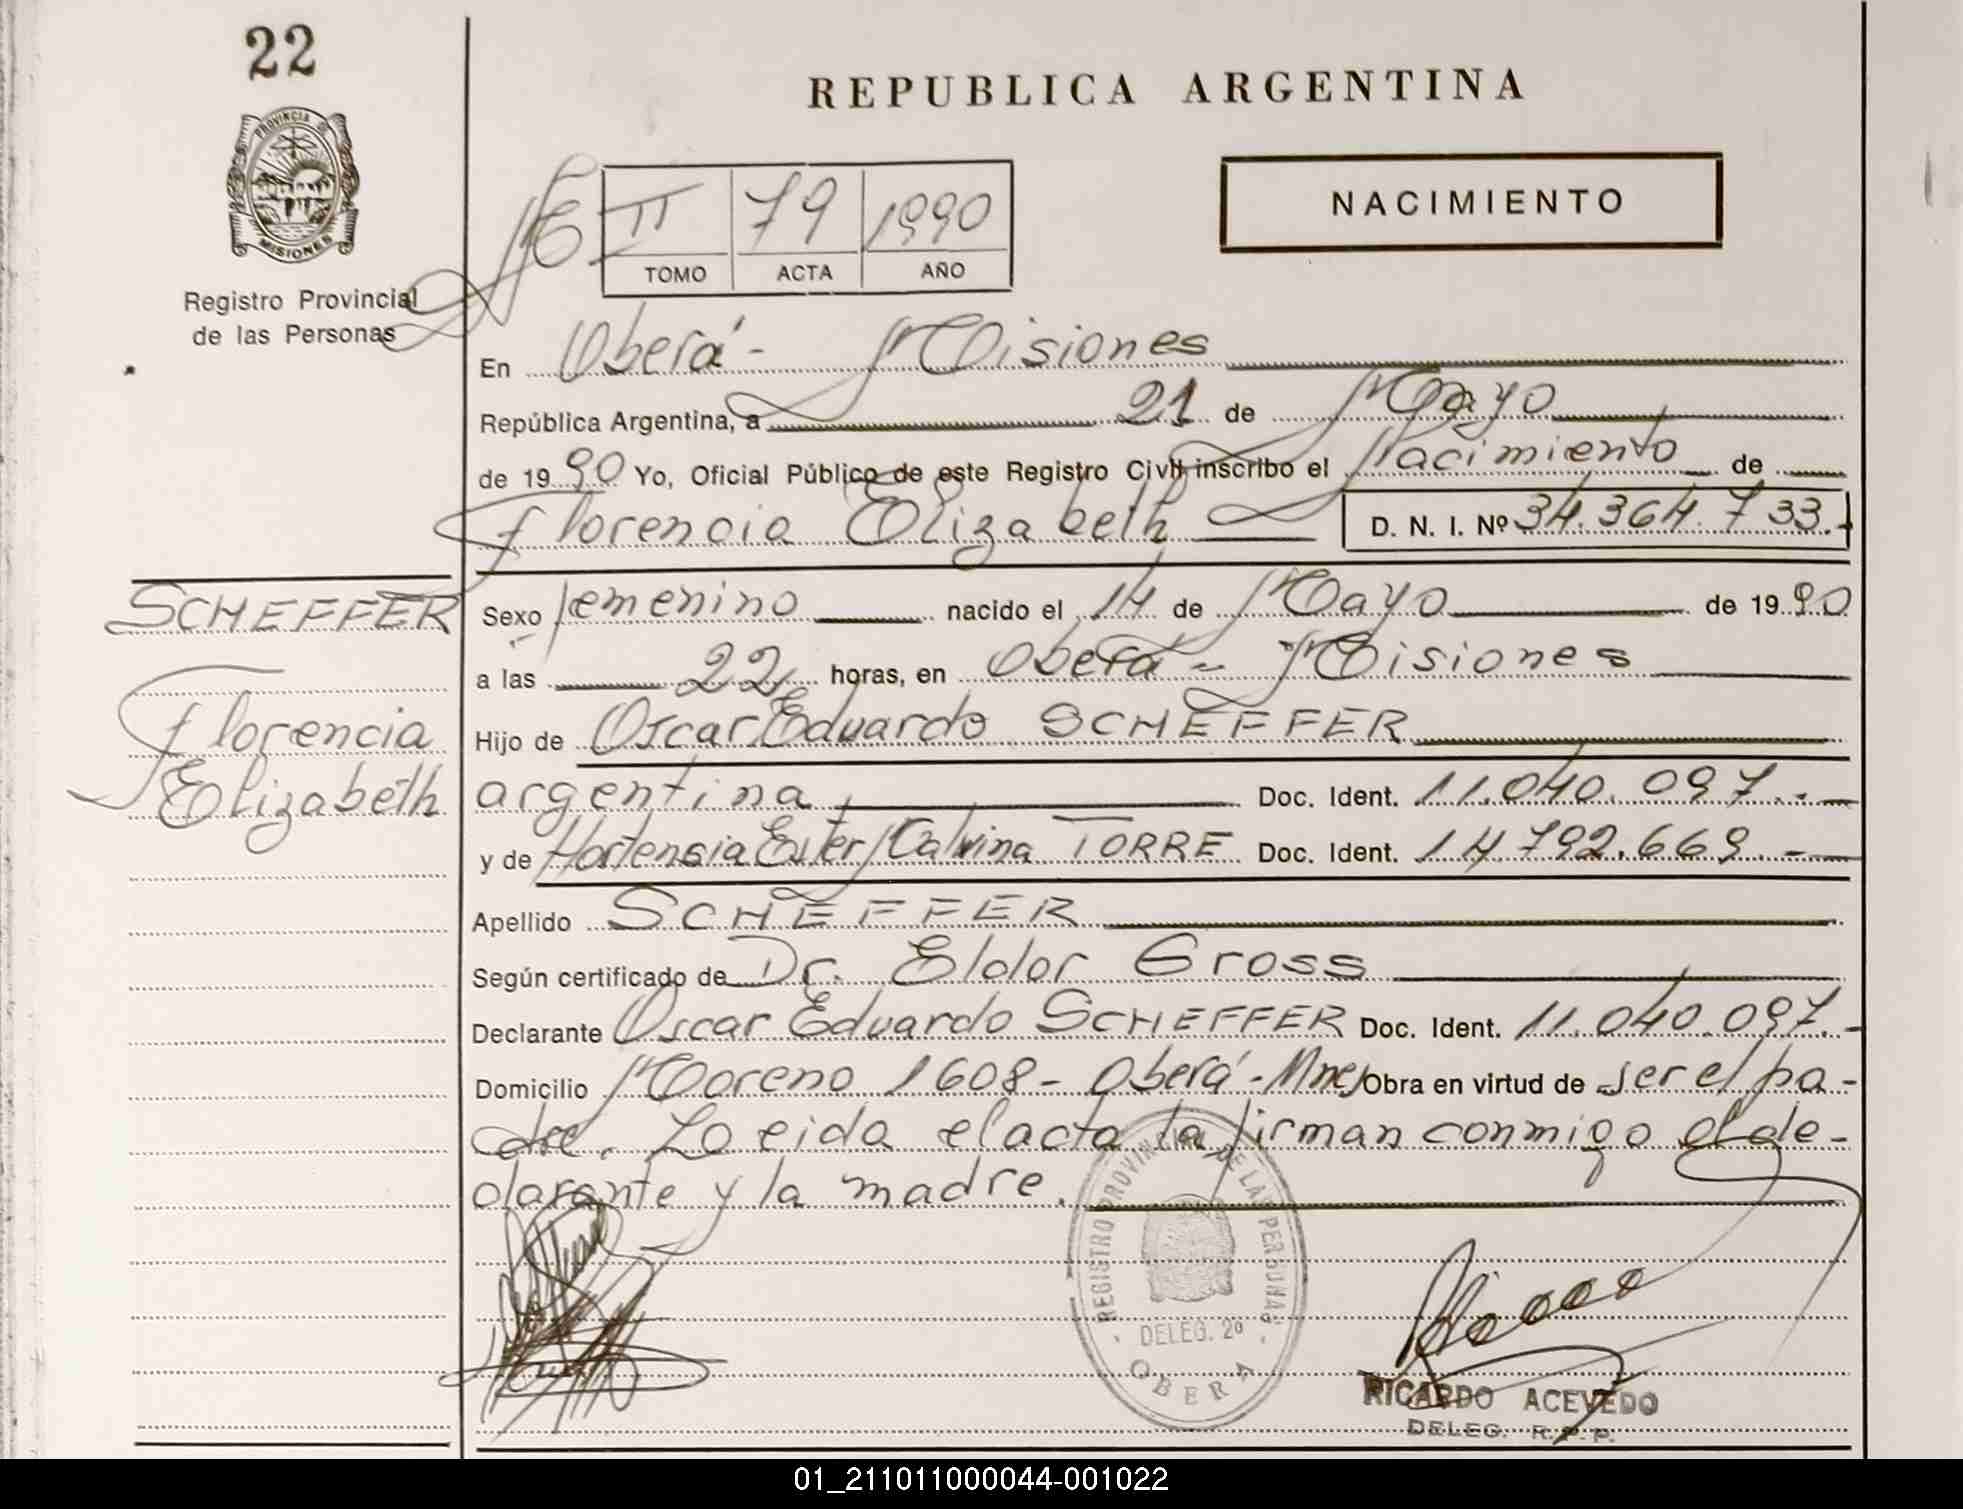 22
PROVINCIA DE
MISIONES
Registro Provincial
de las Personas
SCHEFFER
Florencia
Elizabeth
REPUBLICA ARGENTINA
II 79 1990
TOMO ACTA AÑO
NACIMIENTO
En Oberá - Misiones
República Argentina, a 21 de Mayo
de 1990 Yo, Oficial Público de este Registro Civil inscribo el Nacimiento de
Florencia Elizabeth D. N. I. Nº 34.364.733.-
Sexo femenino nacido el 14 de Mayo de 1990
a las 22 horas, en Oberá - Misiones
Hijo de Oscar Eduardo SCHEFFER
argentina, Doc. Ident. 11.040.097.-
y de Hortensia Ester Malvina TORRE Doc. Ident. 14.792.669.-
Apellido SCHEFFER
Según certificado de Dr. Eldor Gross
Declarante Oscar Eduardo SCHEFFER Doc. Ident. 11.040.097.-
Domicilio Moreno 1608 - Oberá - Mnes Obra en virtud de ser el pa-
dre. Leida el acta la firman conmigo el de-
clarante y la madre.
REGISTRO PROVINCIAL DE LAS PERSONAS
DELEG. 2º
OBERA
RICARDO ACEVEDO
DELEG. R.P.P.
01_211011000044-001022